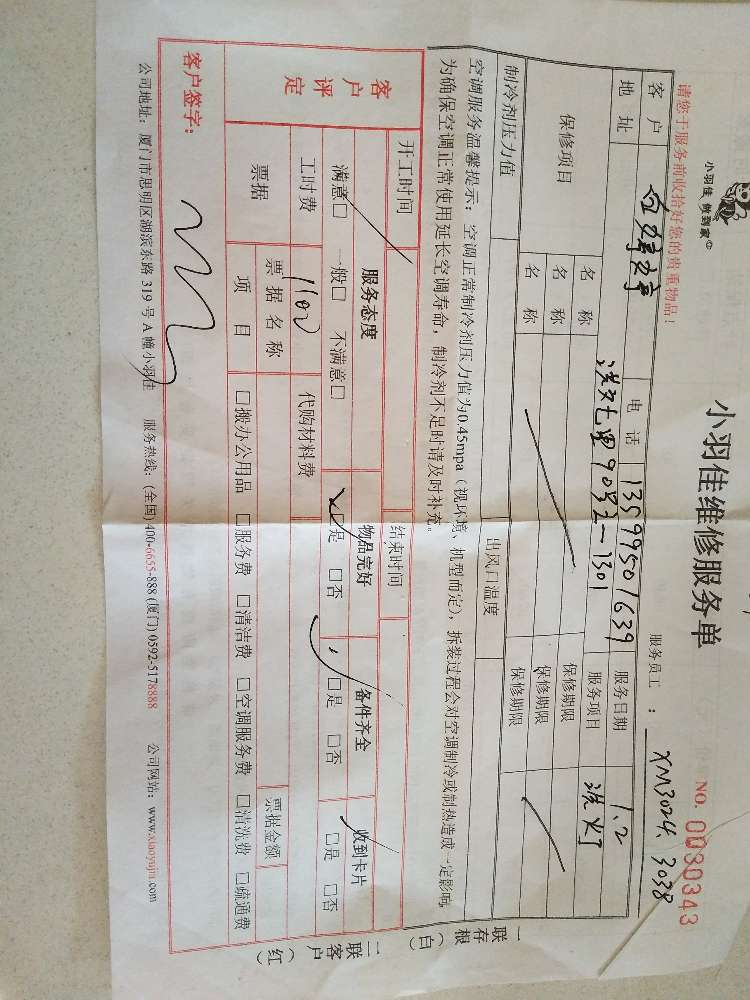 小羽佳 做到家
小羽佳维修服务单
NO. 0030343
请您于服务前收拾好您的贵重物品!
服务员工: XM3024. 3038
客户 电话 13599501639 服务日期 1.2
地址 9032-1301 服务项目 洗灯
保修项目 名称 保修期限
名称 保修期限
名称 保修期限
制冷剂压力值 出风口温度
空调服务温馨提示: 空调正常制冷剂压力值为0.45mpa(视环境、机型而定), 拆装过程会对空调制冷或制热造成一定影响,
为确保空调正常使用延长空调寿命, 制冷剂不足时请及时补充。
开工时间 结束时间
客户评定 服务态度 物品完好 备件齐全 收到卡片
满意□ 一般□ 不满意□ □是 □否 □是 □否 □是 □否
工时费 1100 代购材料费
票据 票据名称 票据金额
项目 □搬办公用品 □服务费 □清洁费 □空调服务费 □清洗费 □疏通费
客户签字:
公司地址: 厦门市思明区湖滨东路 319 号 A 幢小羽佳 服务热线: (全国) 400-6655-888 (厦门) 0592-5178888 公司网站: www.xiaoyujia.com
一联存根(白)
二联客户(红)